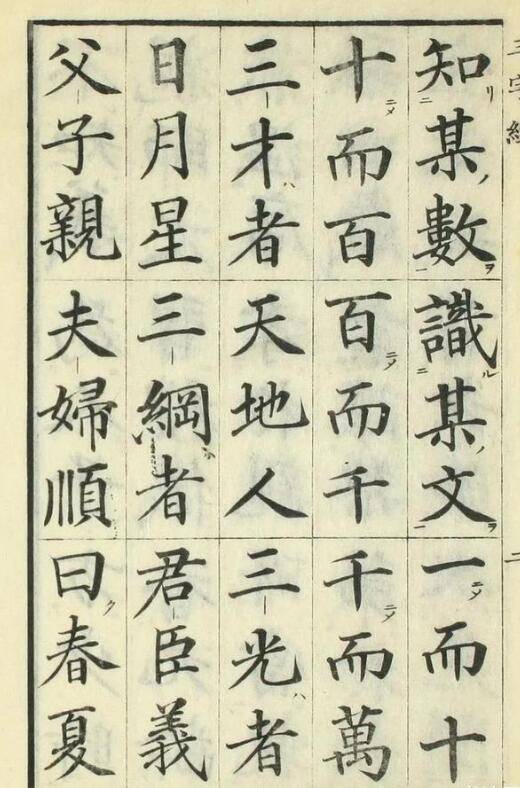 三字經
二
知某數識某文一而十
十而百百而千千而萬
三才者天地人三光者
日月星三綱者君臣義
父子親夫婦順曰春夏